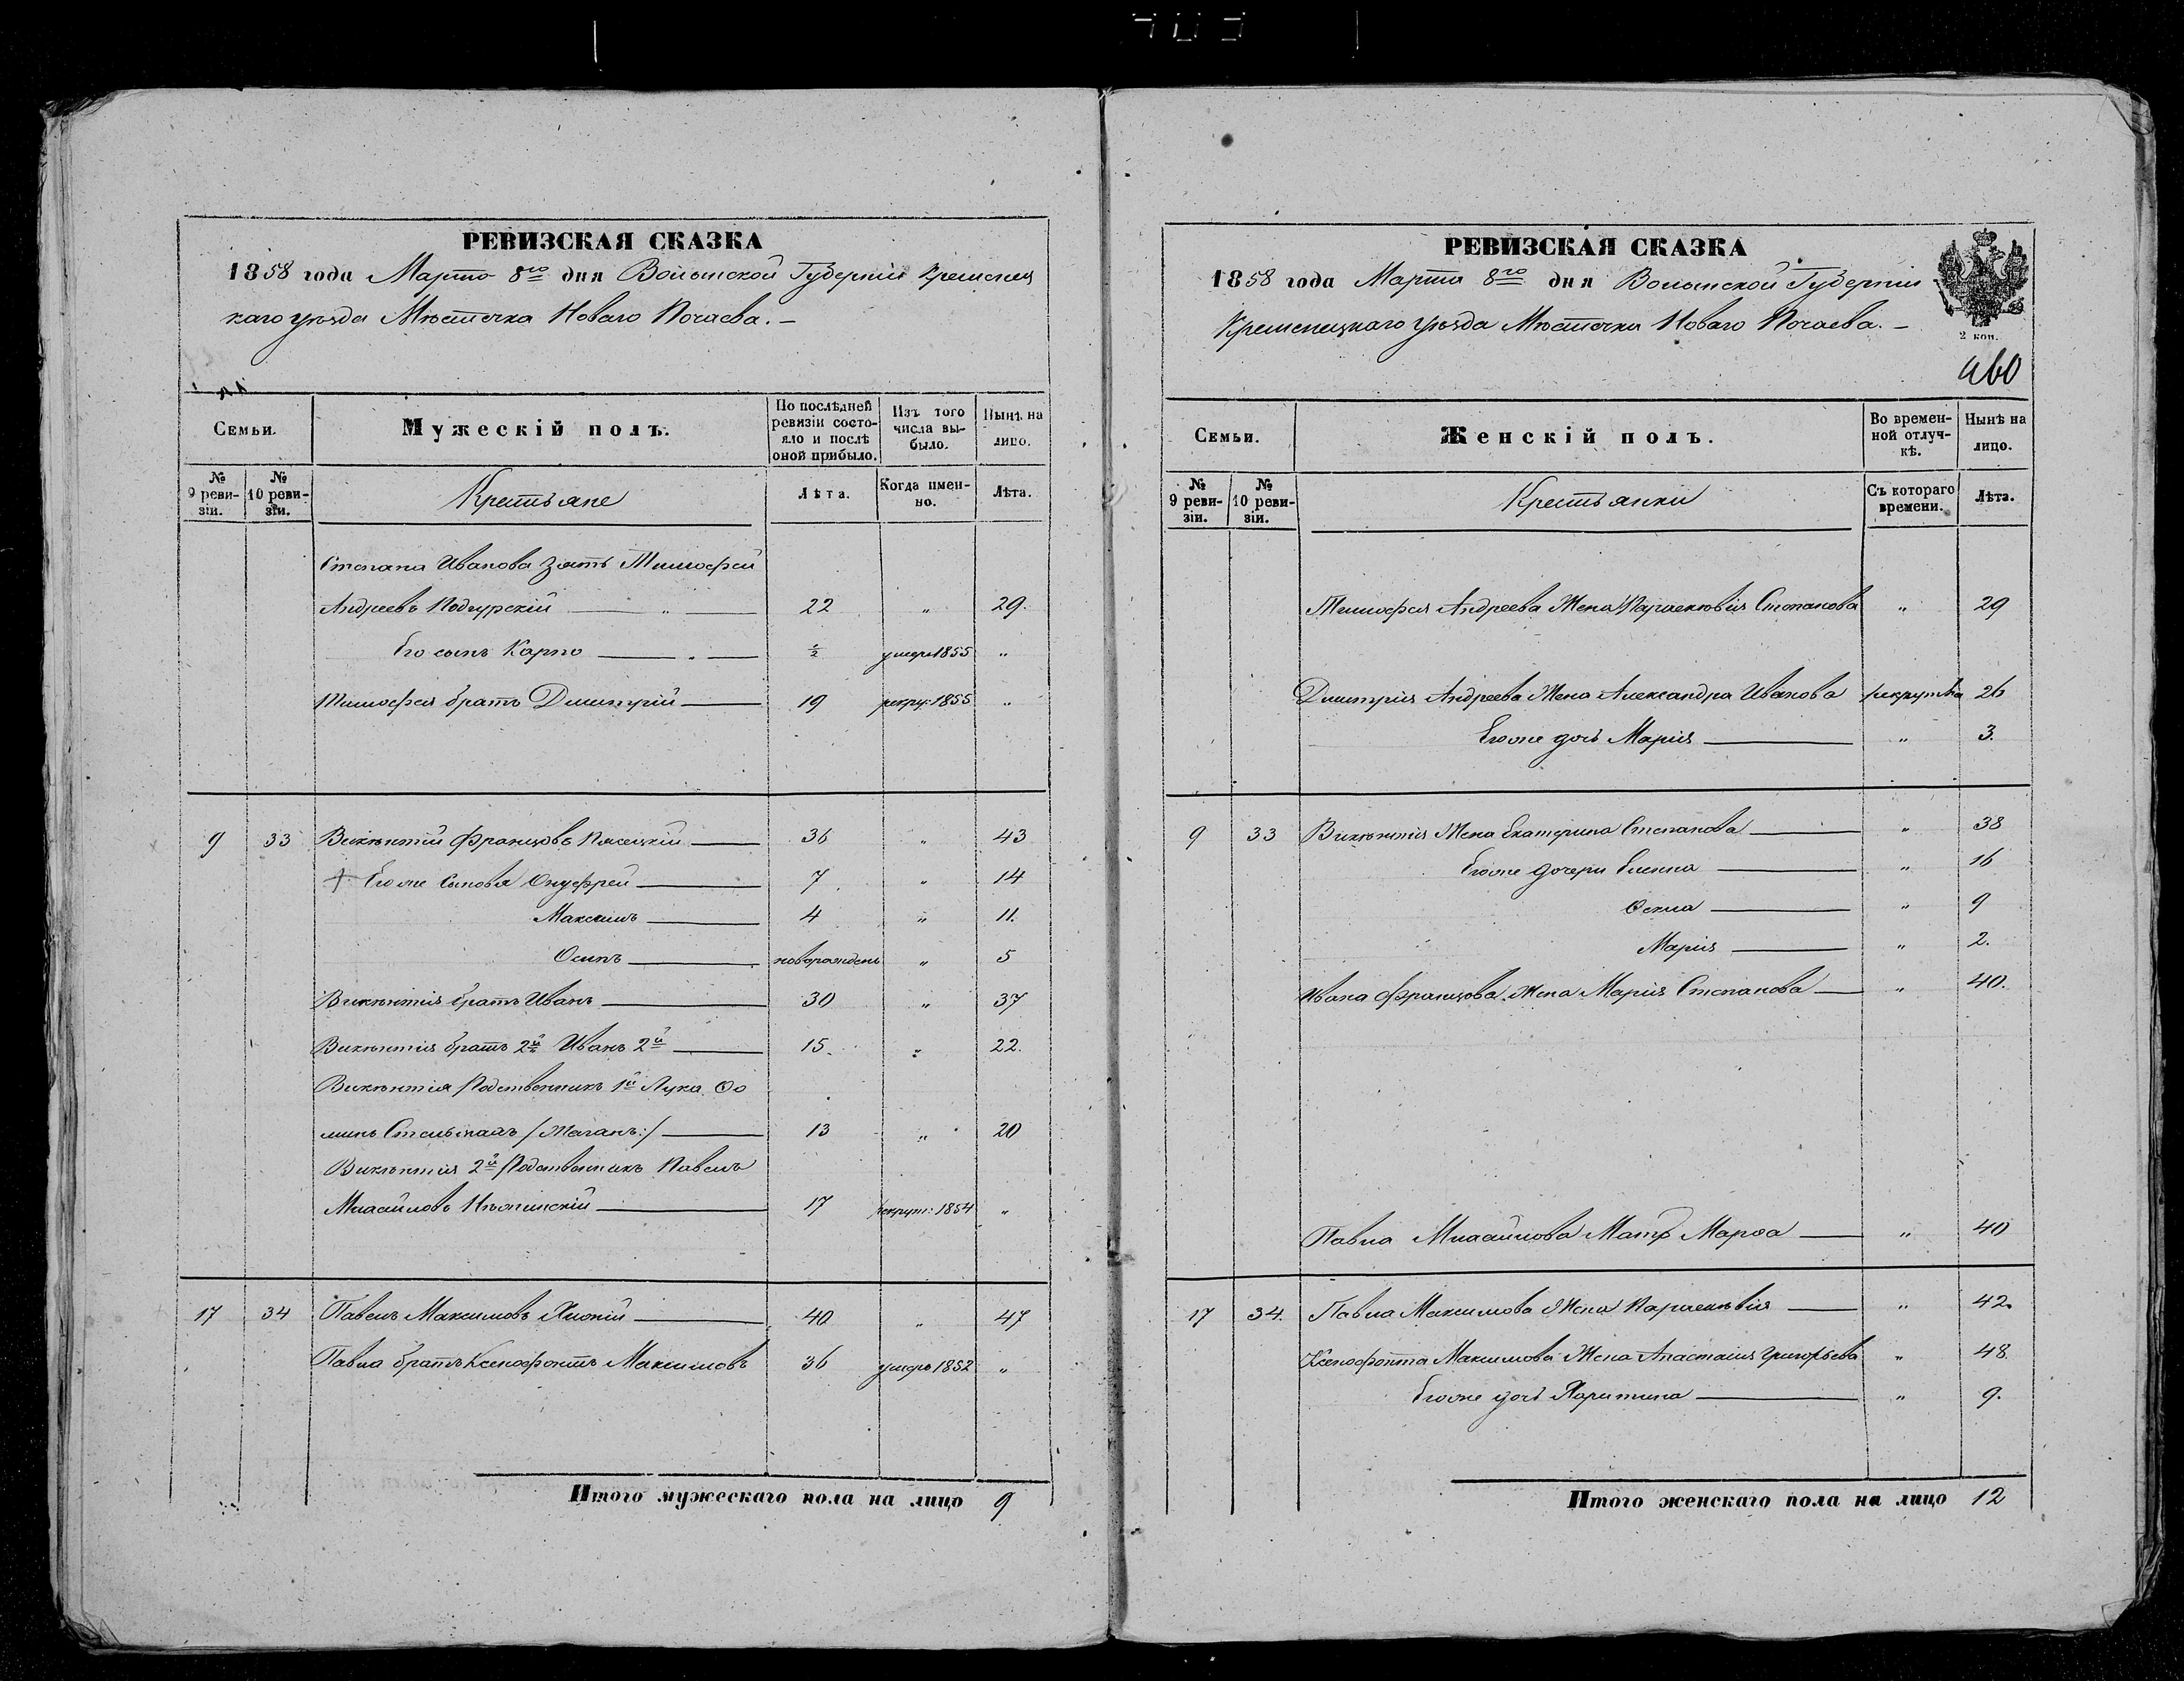 РЕВИЗСКАЯ СКАЗКА
1858 года Марта 8го дня Волынской Губерніи Кременец
каго уѣзда Мѣстечка Новаго Почаева. –
Семьи.
Мужескій полъ.
По послѣдней ревизіи состояло и послѣ оной прибыло.
Изъ того числа выбыло.
Нынѣ на лицо.
№ 9 ревизіи.
№ 10 ревизіи.
Крестьяне
Лѣта.
Когда именно.
Лѣта.
Степана Иванова зять Тимофей
Андреевъ Подгурскій 22 " 29.
Его сынъ Карпо ½ умеръ 1855 "
Тимофея братъ Дмитрій 19 рекру: 1855 "
9 33 Викѣнтій Францовъ Пясецкій 36 " 43
Егоже сыновья Онуфрей 7 " 14
Максимъ 4 " 11.
Осипъ новорожденъ " 5
Викѣнтія братъ Иванъ 30 " 37
Викѣнтія братъ 2й Иванъ 2й 15. " 22.
Викѣнтія Родственникъ 1й Лука Ѳо
минъ Стельмахъ 13 " 20
Викѣнтія 2й Родственникъ Павелъ
Михайловъ 17 рекрут: 1854 "
17 34 Павелъ Максимовъ 40 " 47
Павла братъ Ксенофонтъ Максимовъ 36 умеръ 1852 "
Итого мужескаго пола на лицо 9
РЕВИЗСКАЯ СКАЗКА
2 коп.
1858 года Марта 8го дня Волынской Губерніи
Кременецкаго уѣзда Мѣстечка Новаго Почаева. –
460
Семьи.
Женскій полъ.
Во временной отлучкѣ.
Нынѣ на лицо.
№ 9 ревизіи.
№ 10 ревизіи.
Крестьянки
Съ котораго времени.
Лѣта.
Тимофея Андреева Жена Параскювія Степанова " 29
Дмитрія Андреева Жена Александра Иванова рекрутка 26
Егоже дочь Марія " 3.
9 33 Викѣнтія Жена Екатерина Степанова " 38
Егоже дочери Елена " 16
Ѳекла " 9
Марія " 2.
Ивана Францова Жена Марія Степанова " 40.
Павла Михайлова Мать Марѳа " 40
17 34. Павла Максимова Жена Параскѣвія " 42.
Ксенофонта Максимова Жена Анастасія Григорьева " 48.
Егоже дочь Харитина " 9.
Итого женскаго пола на лицо 12